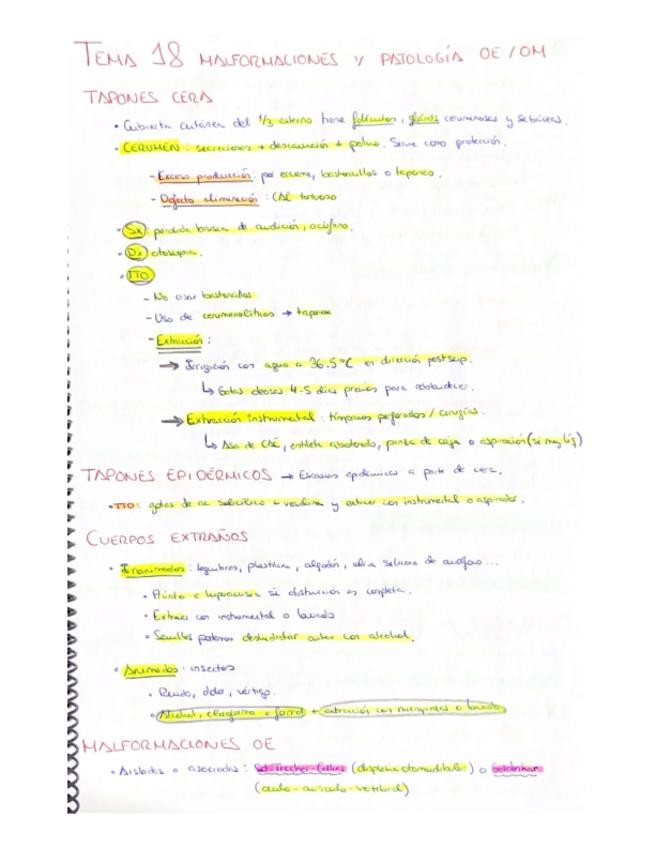 TEMA 18 MALFORMACIONES Y PATOLOGÍA OE / OM
TAPONES CERA
• Cubierta cutánea del 1/3 externo tiene folículos, glánds ceruminosas y sebáceas.
• CERUMEN: secreciones + descamación + polvo. Sirve como protección.
- Exceso producción: por eccema, bastoncillos o tapones.
- Defecto eliminación: CAE tortuoso
• Sx: pérdida brusca de audición, acúfeno.
• Dx: otoscopia.
• TTO
- No usar bastoncillos
- Uso de cerumenolíticos → taponox
- Extracción:
→ Irrigación con agua a 36.5°C en dirección postsup.
↳ Gotas oleosas 4-5 días previos para reblandecer.
→ Extracción instrumental: tímpanos perforados / cirugías.
↳ Asa de CAE, estilete algodonado, pinza de caja o aspiración (si muy líq)
TAPONES EPIDÉRMICOS → Escamas epidérmicas a parte de cera.
• TTO: gotas de ac salicílico + vaselina y extraer con instrumental o aspirador.
CUERPOS EXTRAÑOS
• Inanimados: legumbres, plastilina, algodón, oliva silicona de audífono...
• Prurito e hipoacusia si obstrucción es completa.
• Extraer con instrumental o lavado
• Semillas podemos deshidratar antes con alcohol.
• Animados: insectos
• Ruido, dolor, vértigo...
• Alcohol, cloroformo o formol + extracción con micropinzas o lavado
MALFORMACIONES OE
• Aislados o asociados: Sd. Treacher-Collins (displasia otomandibular) o Goldenhar
(oculo-auriculo-vertebral)